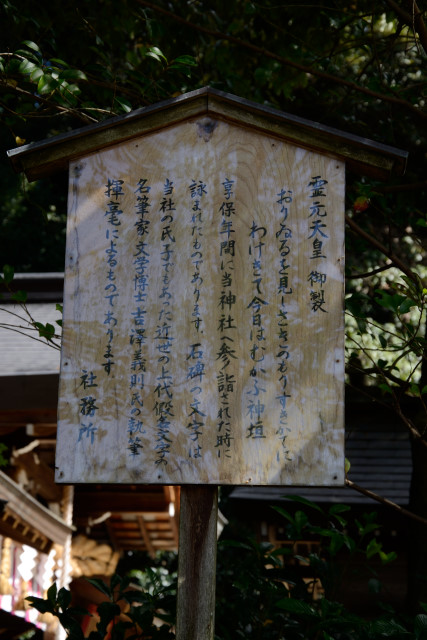 霊元天皇 御製
おりゐるを見しさきつもりすきかてに
わけきて今日はむかふ神垣
享保年間に当神社へ参り詣された時に
詠まれたものであります。石碑の文字は
当社の氏子でもあった近世の一代仮名文字の
名筆家文学博士吉澤義則氏の執筆
揮毫によるものであります
社務所